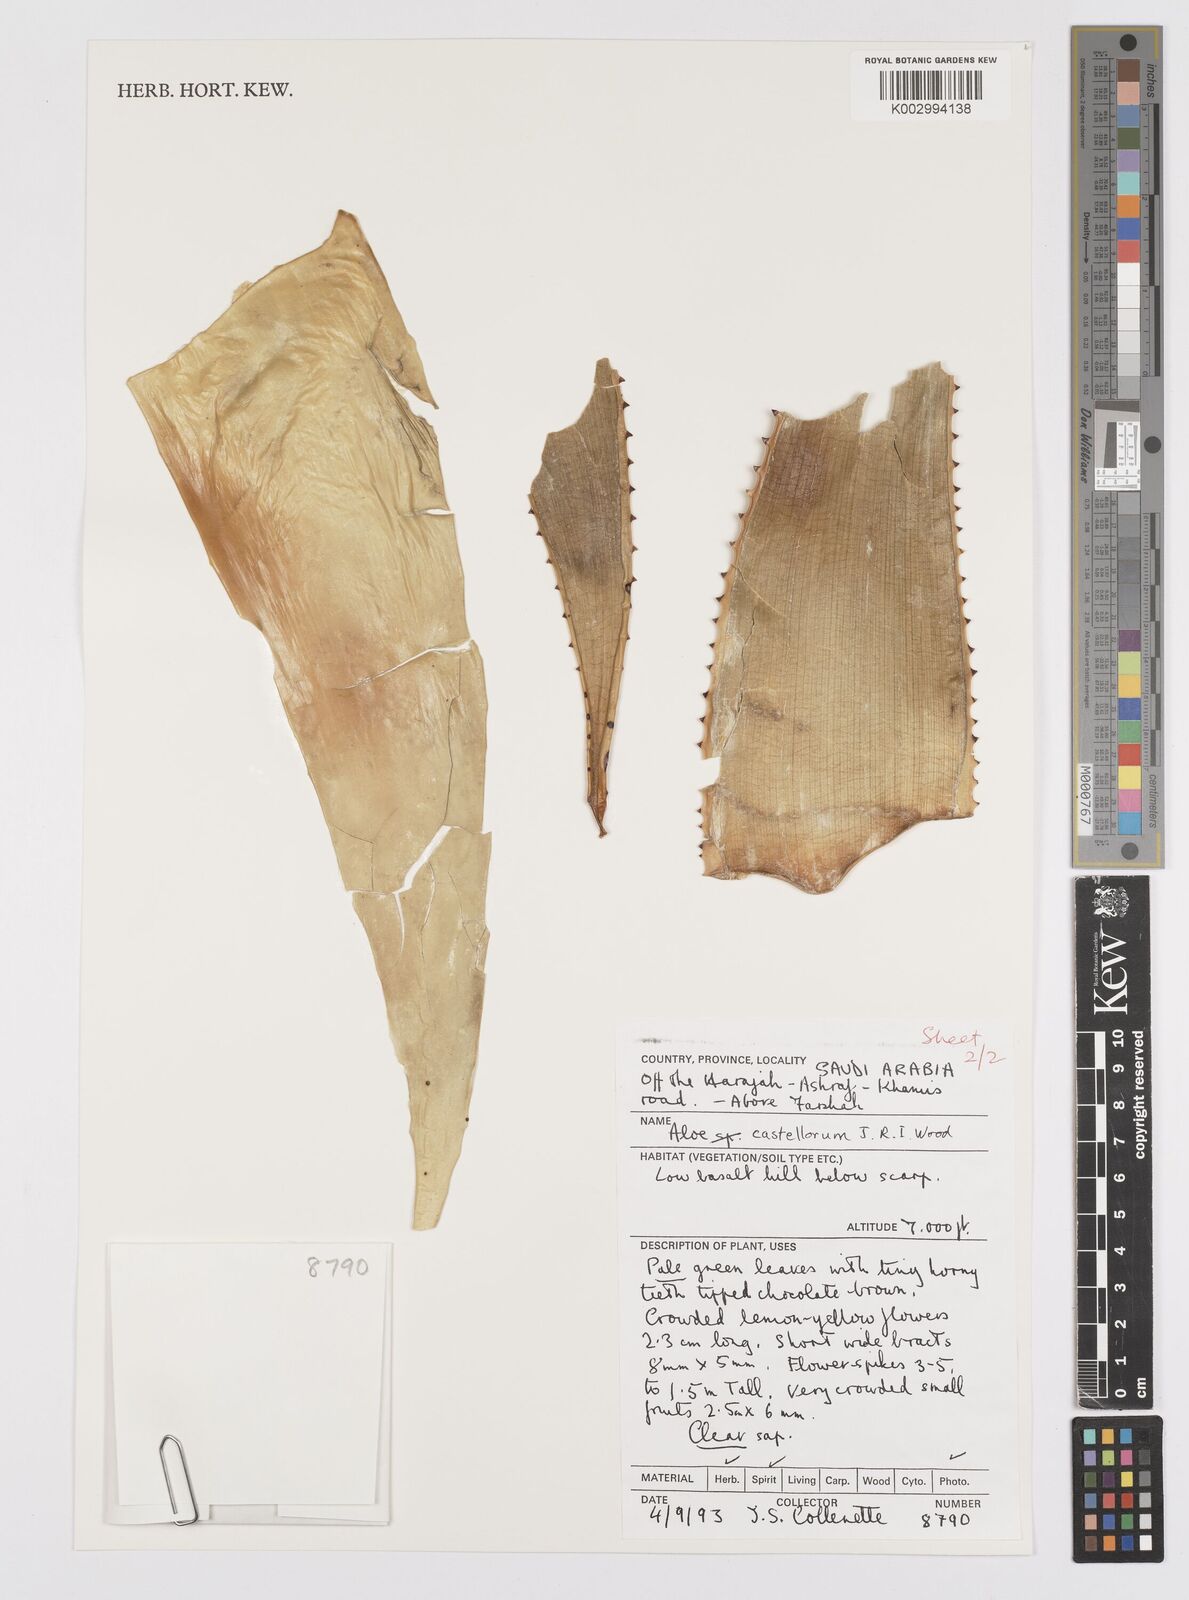 HERB. HORT. KEW.
ROYAL BOTANIC GARDENS KEW
K002994138
Sheet 2/2
COUNTRY, PROVINCE, LOCALITY SAUDI ARABIA
Off the Harajah - Ashraf - Khamis
road. - Above Farshah
NAME Aloe sp. castellorum J. R. I. Wood
HABITAT (VEGETATION/SOIL TYPE ETC.)
Low basalt hill below scarp.
ALTITUDE 7.000 ft.
DESCRIPTION OF PLANT, USES
Pale green leaves with tiny horny
teeth tipped chocolate-brown.
Crowded lemon-yellow flowers
2.3 cm long. Short wide bracts
8mm x 5mm. Flower-spikes 3-5,
to 1.5m Tall. Very crowded small
fruits 2.5m x 6 mm.
Clear sap.
MATERIAL Herb. Spirit Living Carp. Wood Cyto. Photo.
DATE COLLECTOR NUMBER
4/9/93 I.S. Collenette 8790
8790
inches
centimeters
Density
Don Williams
M000767
Royal Botanic Gardens
Kew
0 1 2 3 4 5 6 7 8 9 10
CM
copyright reserved